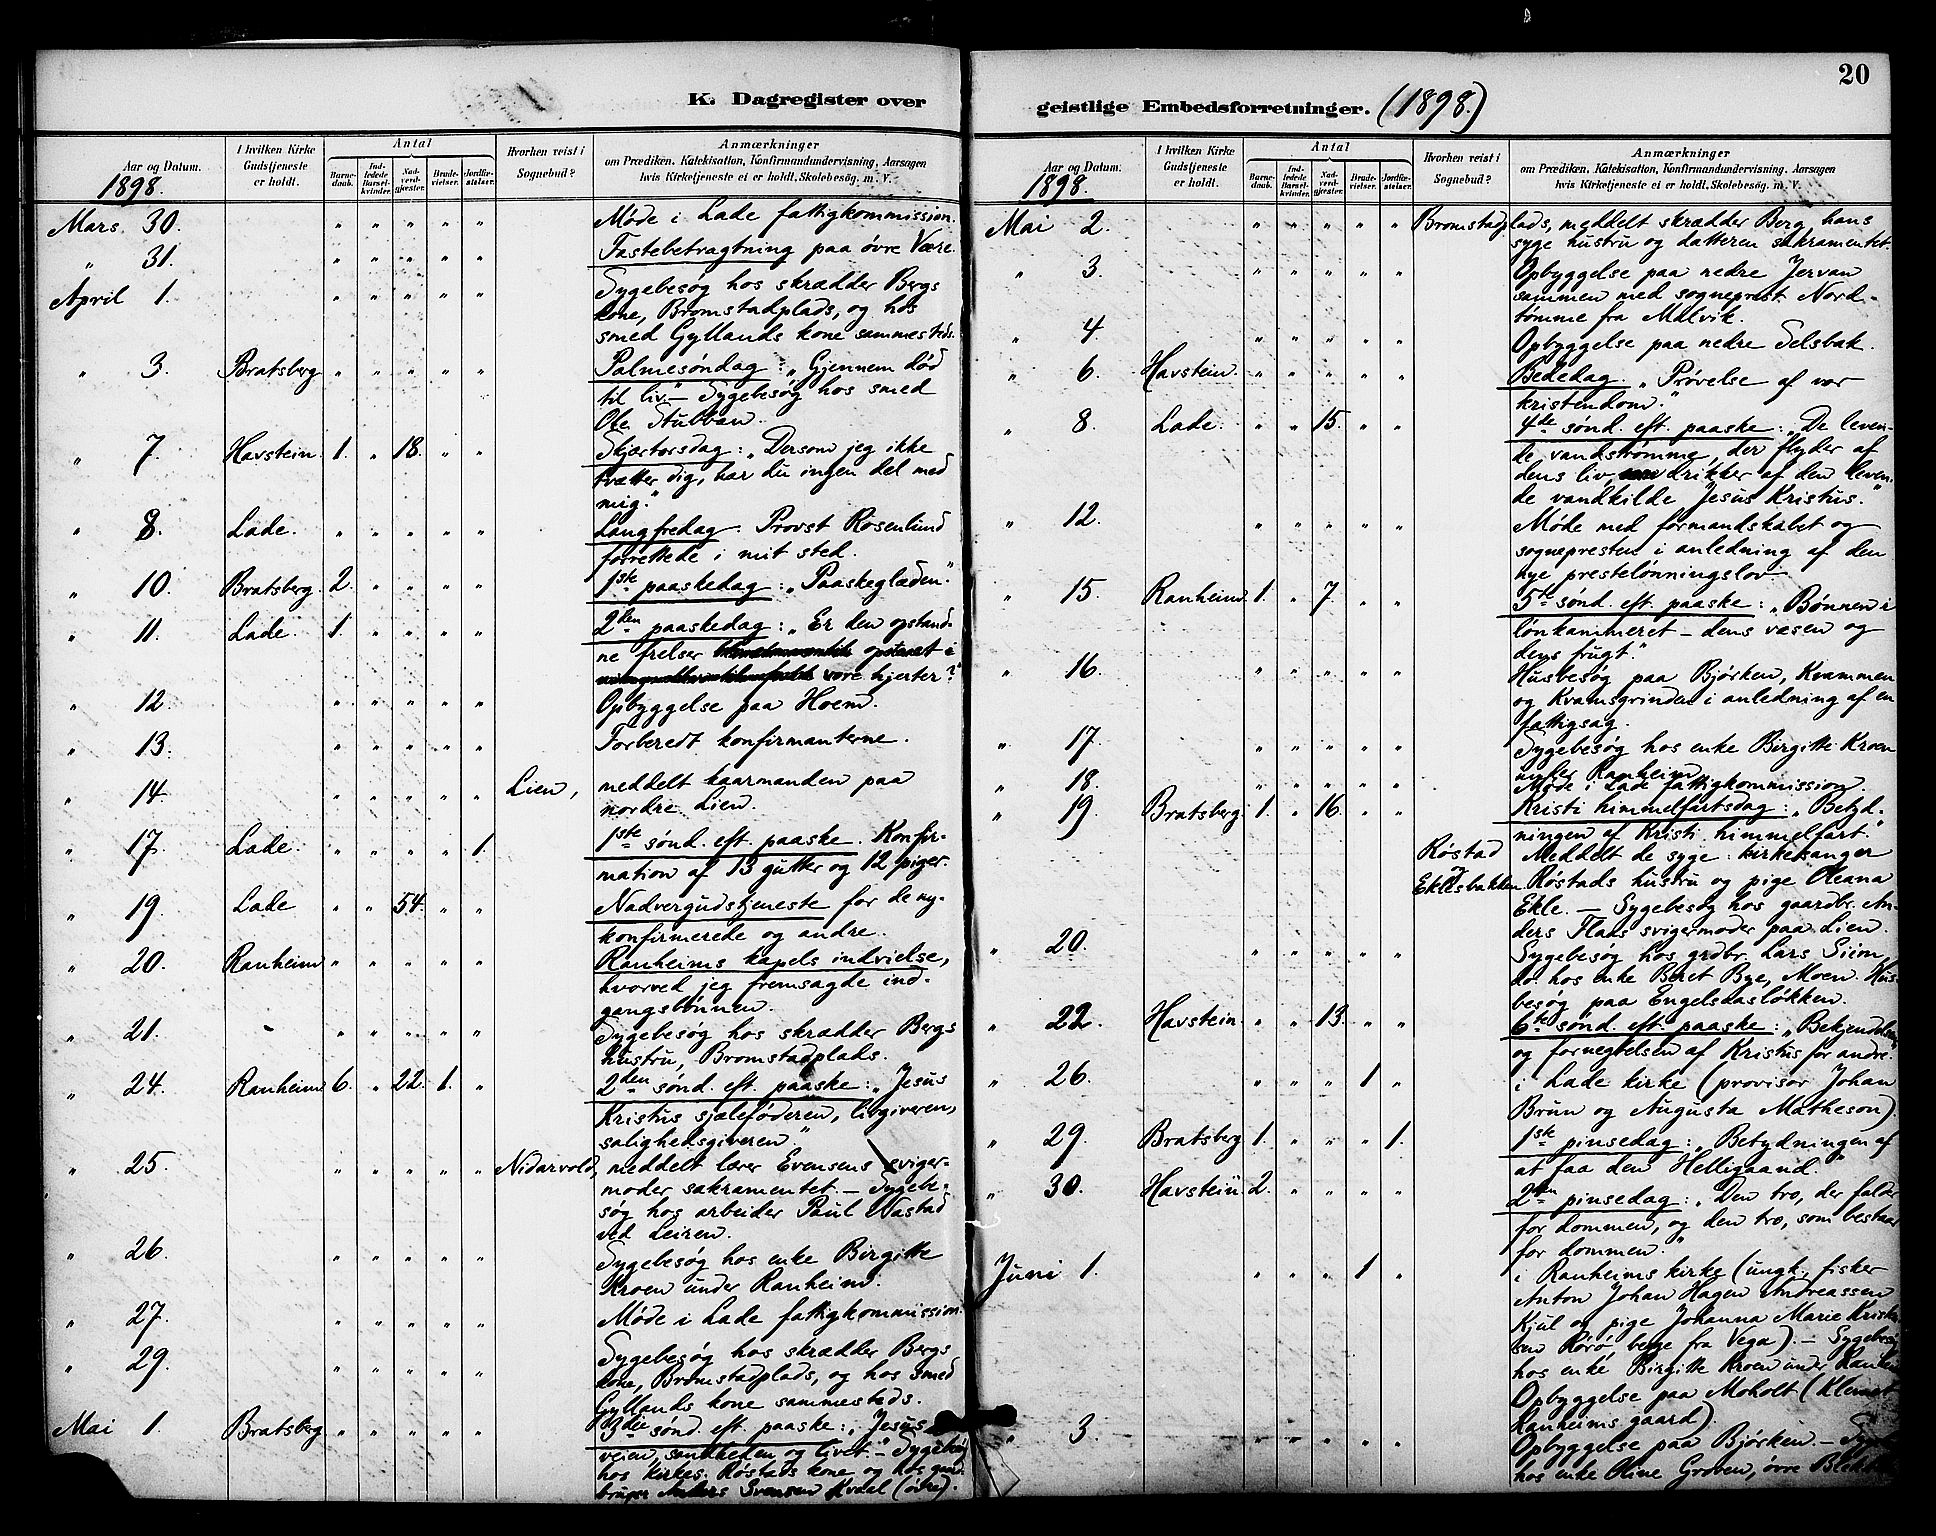 K. Dagregister over
Aar og Datum.
I hvilken Kirke Gudstjeneste er holdt.
Antal
Barnedaab.
Indledede Barselkvinder.
Nadverdgjester.
Brudevielser.
Jordfæstelser.
Hvorhen reist i Sognebud?
Anmærkninger
om Prædiken, Katekisation, Konfirmandundervisning, Aarsagen
hvis Kirketjeneste ei er holdt, Skolebesøg. m. V.
1898.
Mars 30. " " " " " Møde i Lade fattigkommission.
" 31. " " " " " Fastebetragtning paa øvre Være.
April 1. " " " " " Sygebesøg hos skrædder Bergs
kone, Bromstadplads, og hos
smed Gyllands kone sammesteds.
" 3. Bratsberg " " " " " Palmesøndag: „Gjennem død
til liv." – Sygebesøg hos smed
Ole Stubban.
" 7. Havstein. 1. " 18. " " Skjærtorsdag: „Dersom jeg ikke
tvætter dig, har du ingen del med
mig."
" 8. Lade. " " " " " Langfredag. Provst Rosenlund
forrettede i mit sted.
" 10. Bratsberg. 2. " " " " 1ste paaskedag: „Paaskeglæden."
" 11. Lade. 1. " " " " 2den paaskedag: „Er den opstand-
ne frelser opstanet i
vore hjerter?"
" 12. " " " " " Opbyggelse paa Hoem.
" 13. " " " " " Forberedt konfirmanterne.
" 14. " " " " " Lien, meddelt kaarmanden paa
nordre Lien.
" 17. Lade. " " " " 1. 1ste sønd. eft. paaske. Konfir-
mation af 13 gutter og 12 piger.
" 19. Lade " " 54. " " Nadvergudstjeneste for de ny-
konfirmerede og andre.
" 20. Ranheim " " " " " Ranheims kapels indvielse,
hvorved jeg fremsagde ind-
gangsbønnen.
" 21. " " " " " Sygebesøg hos skrædder Bergs
hustru, Bromstadplads.
" 24. Ranheim 6. " 22. 1. " 2den sønd. eft. paaske: „Jesus
Kristus sjæleføderen, livgiveren,
salighedsgiveren."
" 25. " " " " " Nidarvold, meddelt lærer Evensens sviger-
moder sakramentet. – Sygebe-
søg hos arbeider Paul Nastad
ved Leiren.
" 26. " " " " " Sygebesøg hos enke Birgitte
Kroen under Ranheim.
" 27. " " " " " Møde i Lade fattigkommission.
" 29. " " " " " Sygebesøg hos skrædder Bergs
kone, Bromstadplads, og hos smed
Gyllands kone sammesteds.
Mai 1. Bratsberg " " " " " 3die sønd. eft. paaske: „Jesus
veien, sandheden og livet." – Sygebesøg
hos kirkes. Røstads kone og hos gaard-
bruger Anders Svensen Kvaal (øvre).
geistlige Embedsforretninger. (1898.)
20
Aar og Datum.
I hvilken Kirke Gudstjeneste er holdt.
Antal
Barnedaab.
Indledede Barselkvinder.
Nadverdgjester.
Brudevielser.
Jordfæstelser.
Hvorhen reist i Sognebud?
Anmærkninger
om Prædiken, Katekisation, Konfirmandundervisning, Aarsagen
hvis Kirketjeneste ei er holdt, Skolebesøg. m. V.
1898.
Mai 2. " " " " " Bromstadplads, meddelt skrædder Berg hans
syge hustru og datteren sakramentet.
" 3. " " " " " Opbyggelse paa nedre Jervan
sammen med sogneprest Nord-
tømme fra Malvik.
" 4. " " " " " Opbyggelse paa nedre Selsbak.
" 6. Havstein. " " " " " Bededag. „Prøvelse af vor
kristendom."
" 8. Lade. " " 15. " " 4de sønd. eft. paaske: „De leven-
de vandstrømme, der flyder af
dens liv, drikker af den leven-
de vandkilde Jesus Kristus."
" 12. " " " " " Møde med formandskabet og
sognepresten i anledning af den
nye prestelønningslov.
" 15. Ranheim 1. " 7. " " 5te sønd. eft. paaske: „Bønnen i
lønkammeret – dens væsen og
dens frugt."
" 16. " " " " " Husbesøg paa Bjørken, Kvammen
og Kvamsgrinden i anledning af en
fattigsag.
" 17. " " " " " Sygebesøg hos enke Birgitte Kroen
under Ranheim.
" 18. " " " " " Møde i Lade fattigkommission.
" 19. Bratsberg. 1. " 16. " " Kristi himmelfartsdag: „Betyd-
ningen af Kristi himmelfart."
Røstad Meddelt de syge: kirkesanger
og Eklesbakken Røstads hustru og pige Oleana
Ekle. – Sygebesøg hos gaardbr. An-
ders Flaas svigermoder paa Lien.
" 20. " " " " " Sygebesøg hos grdbr. Lars Siem,
do. hos enke Beret Bye, Moen. Hus-
besøg paa Engelsaasløkken.
" 22. Havstein. " " 13. " " 6te sønd. eft. paaske: „Bekjendelsen
og fornegtelsen af Kristus for andre."
" 26. " " " 1 " i Lade kirke (provisor Johan
Brun og Augusta Matheson).
" 29. Bratsberg 1. " " " 1. 1ste pinsedag: „Betydningen af
at faa den Helligaand."
" 30. Havstein 2. " " " " 2den pinsedag: „Den tro, der falder
for dommen, og den tro, som bestaar
for dommen."
Juni 1. " " " 1 " i Ranheims kirke (ungk. fisker
Anton Johan Hagen Andreassen
Kjul og pige Johanna Marie Kristi-
sen Rørø, begge fra Vega). – Sygebesøg
hos enke Birgitte Kroen under Ranheim
Opbyggelse paa Moholt (Klemet
Ranheims gaard).
" 3. " " " " " Opbyggelse paa Bjørken. –
hos enke Oline Groven, øvre